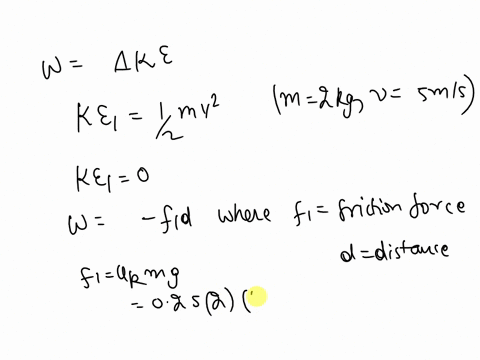 W = ΔKE
KE₁ = 1/2 mv² (m=2kg, v= 5m/s)
KE₁ = 0
W = -f₁d where f₁ = friction force
d = distance
f₁ = μₖmg
= 0.25(2)(